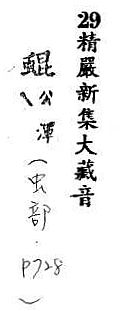 29精嚴新集大藏音
鯤公渾(虫部.P728)